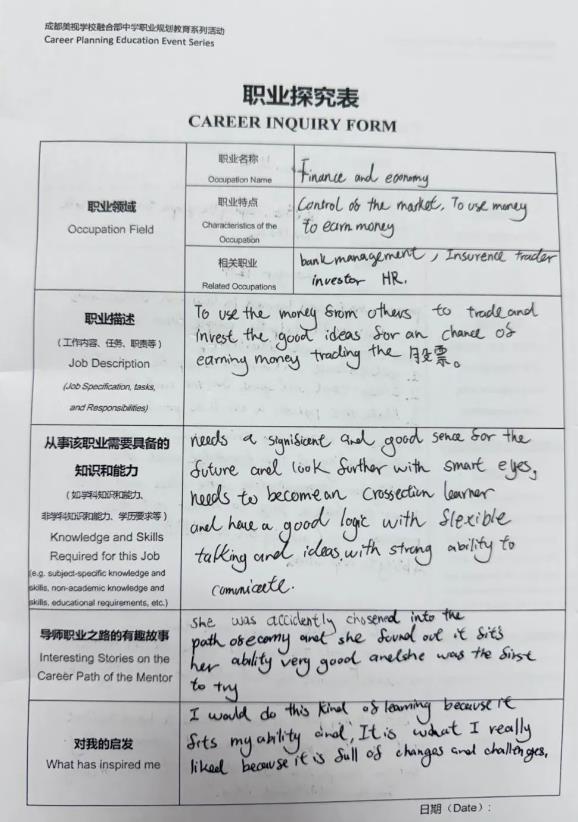 成都美视学校融合部中学职业规划教育系列活动
Career Planning Education Event Series
职业探究表
CAREER INQUIRY FORM
职业领域
Occupation Field
职业名称
Occupation Name
Finance and economy
职业特点
Characteristics of the
Occupation
Control of the market, To use money
to earn money
相关职业
Related Occupations
bank management, Insurence trader
investor HR.
职业描述
(工作内容、任务、职责等)
Job Description
(Job Specification, tasks,
and Responsibilities)
To use the money from others to trade and
invest the good ideas for an chance of
earning money trading the 股票。
从事该职业需要具备的
知识和能力
(如学科知识和能力、
非学科知识和能力、学历要求等)
Knowledge and Skills
Required for this Job
(e.g. subject-specific knowledge and
skills, non-academic knowledge and
skills, educational requirements, etc.)
needs a significent and good sence for the
future and look further with smart eyes,
needs to become an crossection learner
and have a good logic with flexible
talking and ideas, with strong ability to
comunicate.
导师职业之路的有趣故事
Interesting Stories on the
Career Path of the Mentor
she was accidently chosened into the
path of ecomy and she found out it fits
her ability very good and she was the first
to try
对我的启发
What has inspired me
I would do this kind of learning because it
fits my ability and, It is what I really
liked because it is full of changes and challenges.
日期 (Date):